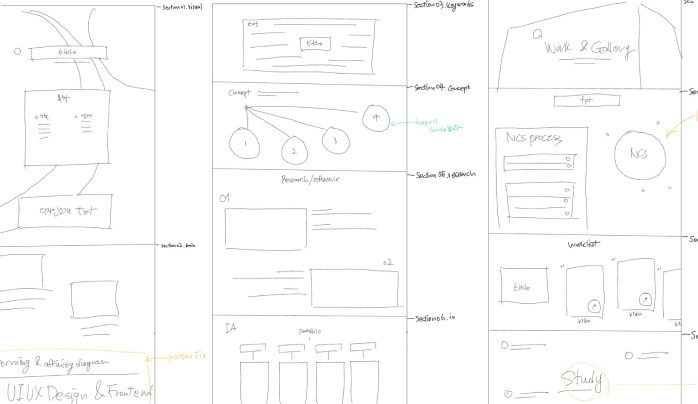 section01.visual
title
txt
section2.main
position fix
orming & affinity diagram
UIUX Design & Frontend
section03.keywords
txt
title
section04.concept
concept
1
2
3
4
section05.research
Research/reference
01
02
section06.ia
IA
portfolio
Work & Gallery
txt
NCS process
NCS
worklist
title
video
video
Study